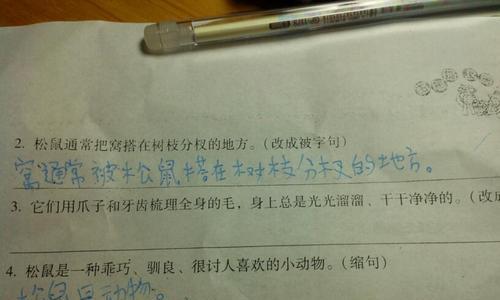 2. 松鼠通常把窝搭在树枝分杈的地方。(改成被字句)
窝通常被松鼠搭在树枝分杈的地方。
3. 它们用爪子和牙齿梳理全身的毛,身上总是光光溜溜、干干净净的。(改成
4. 松鼠是一种乖巧、驯良、很讨人喜欢的小动物。(缩句)
松鼠是动物。